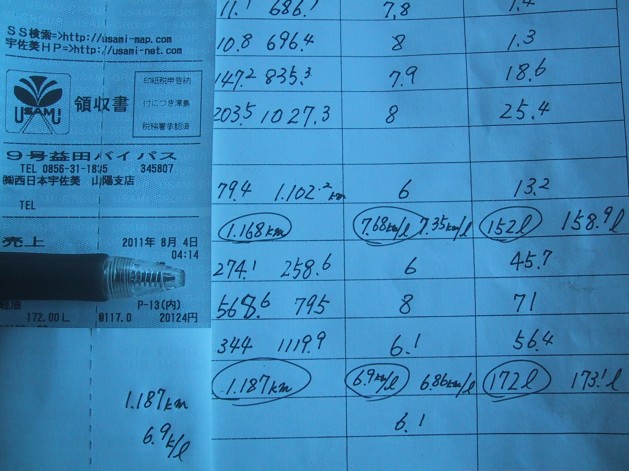 SS検索=>http://usami-map.com
宇佐美HP=>http://usami-net.com
USAMI
領収書
印紙税申告納
付につき津島
税務署承認済
9号益田バイパス
TEL 0856-31-18 5 345807
㈱西日本宇佐美 山陽支店
TEL
売上 2011年 8月 4日
04:14
P-13(内)
172.00L @117.0 20124円
1.187km
6.9k/l
11.1 686.1 7.8 1.4
10.8 696.4 8 1.3
147.2 835.3 7.9 18.6
203.5 1027.3 8 25.4
79.4 1.102.2km 6 13.2
1.168km 7.68km/l 7.35km/l 152l 158.9l
274.1 258.6 6 45.7
568.6 795 8 71
344 1119.9 6.1 56.4
1.187km 6.9km/l 6.86km/l 172l 173.1l
6.1